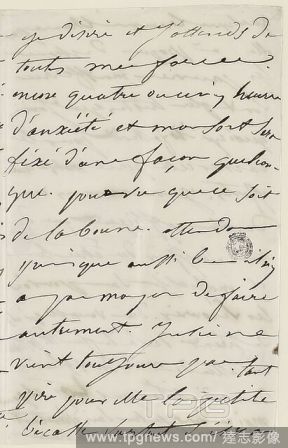 je désire et j'attends de
toutes mes forces.
encore quatre ou cinq heures
d'anxiété et mon sort sera
fixé d'une façon quelcon-
que. pourvu que ce soit
de la bonne. attendons
puisque aussi bien il n'y
a pas moyen de faire
autrement. Julie ne
vient toujours pas. tant
pire pour elle la petite
TPG
www.tpgnews.com 達志影像